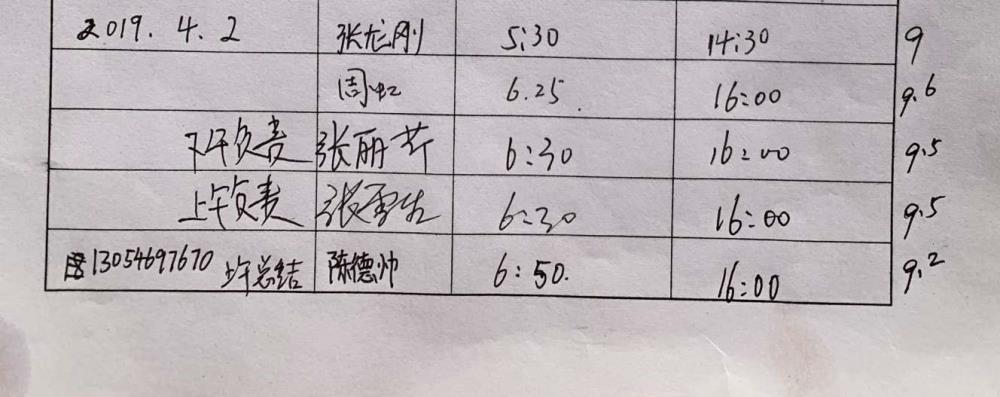 2019. 4. 2 张龙刚 5:30 14:30 9
周虹 6.25 16:00 9.6
下午负责 张丽芹 6:30 16:00 9.5
上午负责 张雪生 6:30 16:00 9.5
13054697670 上午总结 陈德帅 6:50. 16:00 9.2